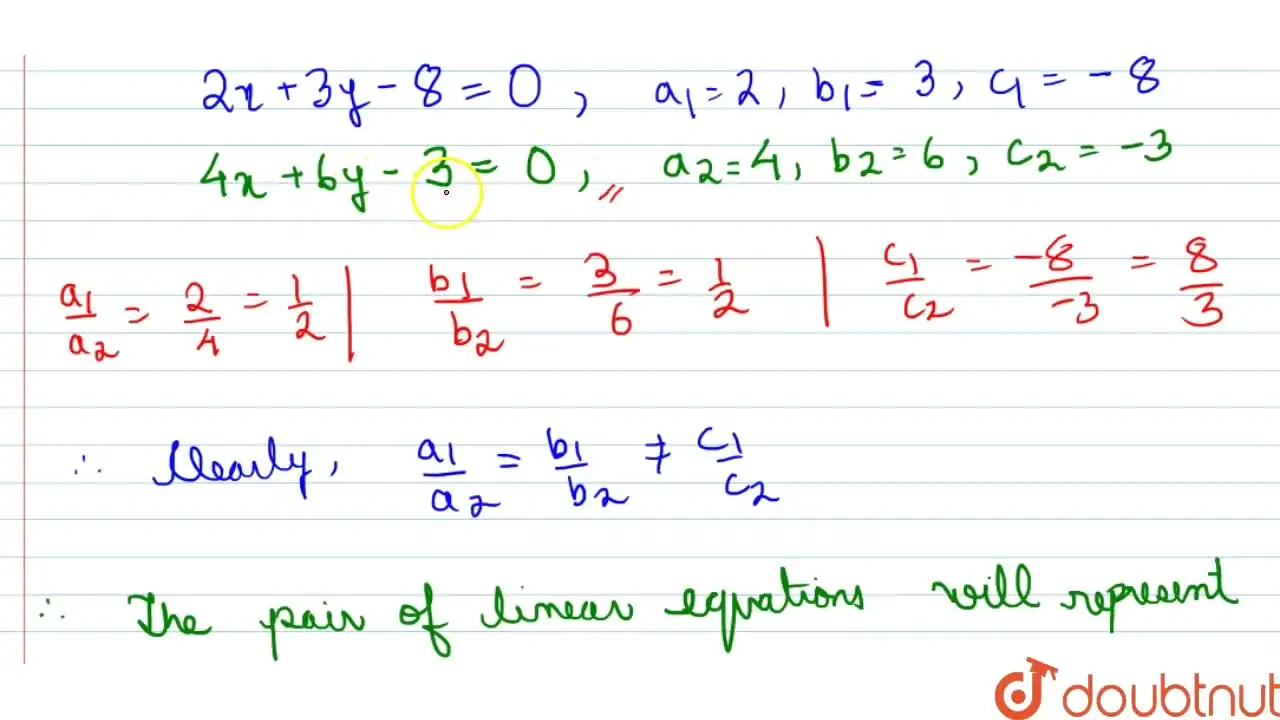 2x + 3y - 8 = 0 , a1 = 2 , b1 = 3 , c1 = - 8
4x + 6y - 3 = 0 , a2 = 4 , b2 = 6 , c2 = - 3
a1/a2 = 2/4 = 1/2 | b1/b2 = 3/6 = 1/2 | c1/c2 = -8/-3 = 8/3
∴ Clearly, a1/a2 = b1/b2 ≠ c1/c2
∴ The pair of linear equations will represent
doubtnut